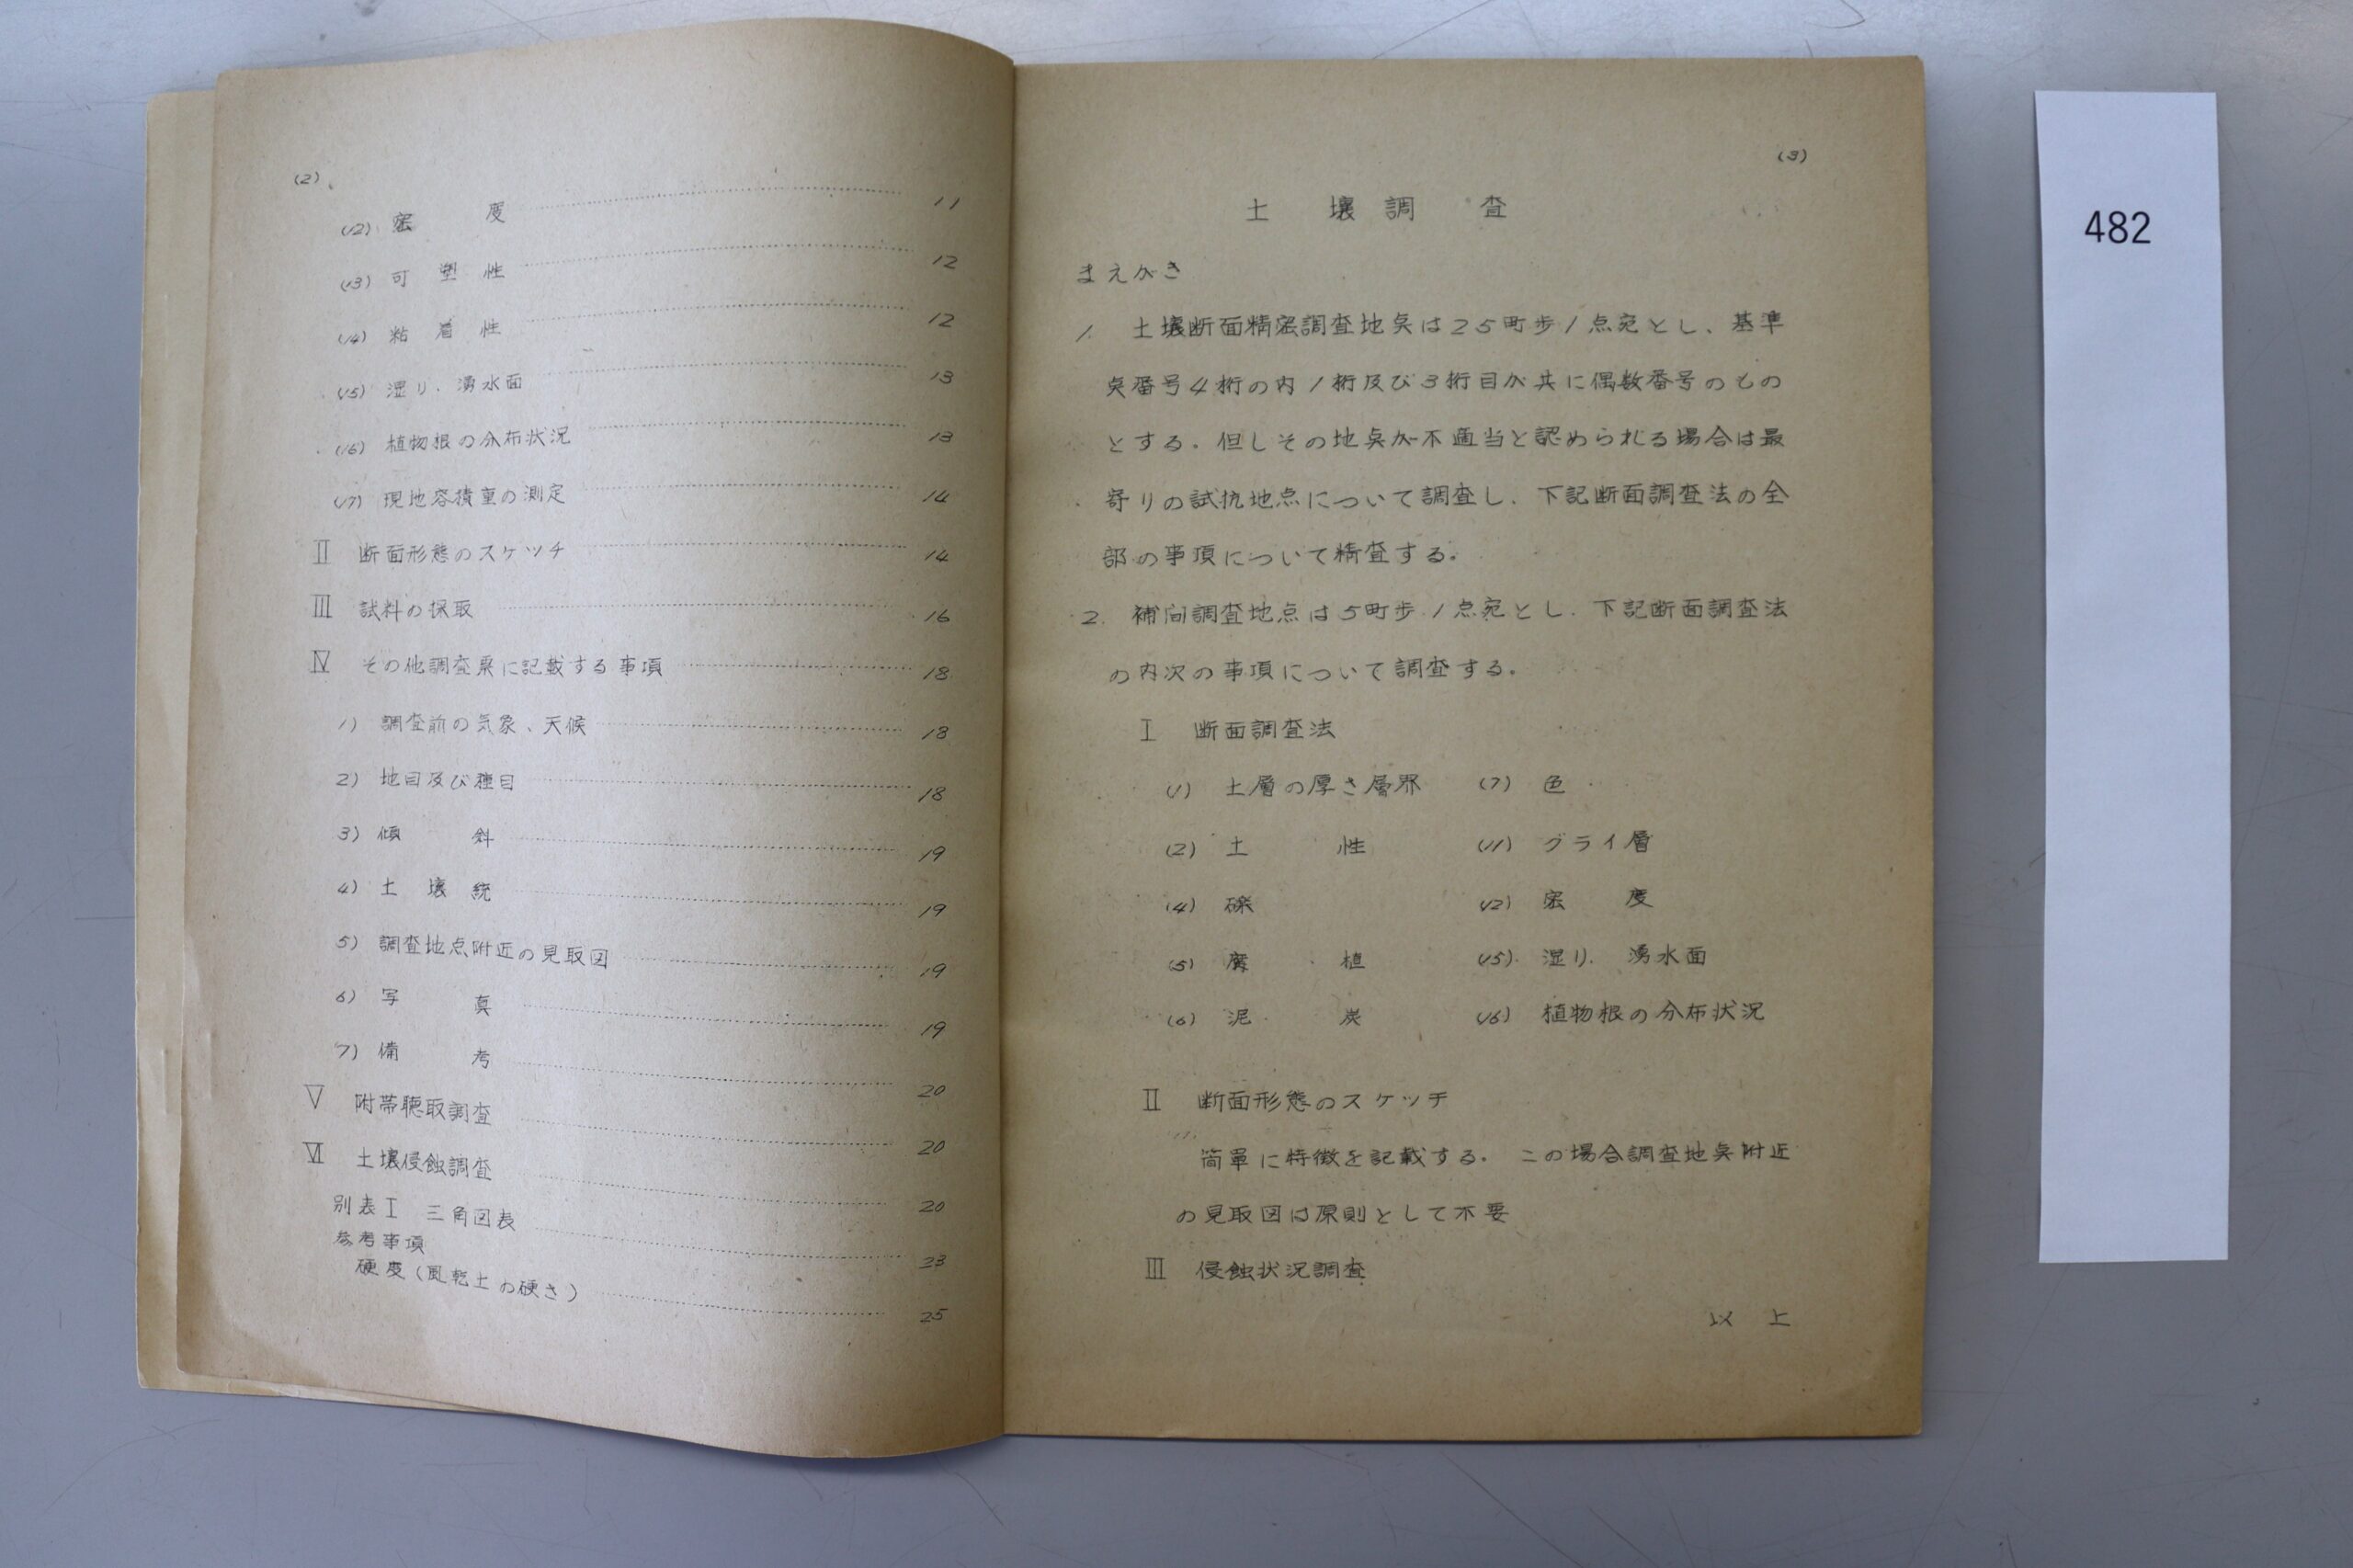 (2)
(12) 密度 11
(13) 可塑性 12
(14) 粘着性 12
(15) 湿り、湧水面 13
(16) 植物根の分布状況 13
(17) 現地容積重の測定 14
Ⅱ 断面形態のスケッチ 14
Ⅲ 試料の採取 16
Ⅳ その他調査票に記載する事項 18
1) 調査前の気象、天候 18
2) 地目及び種目 18
3) 傾斜 19
4) 土壌統 19
5) 調査地点附近の見取図 19
6) 写真 19
7) 備考 20
Ⅴ 附帯聴取調査 20
Ⅵ 土壌侵蝕調査 20
別表Ⅰ 三角図表 23
参考事項
硬度(風乾土の硬さ) 25
(3)
土壌調査
まえがき
1. 土壌断面精密調査地奌は25町歩1点宛とし、基準
奌番号4桁の内1桁及び3桁目が共に偶数番号のもの
とする。但しその地奌が不適当と認められる場合は最
寄りの試抗地点について調査し、下記断面調査法の全
部の事項について精査する。
2. 補间調査地点は5町歩1点宛とし、下記断面調査法
の内次の事項について調査する。
Ⅰ 断面調査法
(1) 土層の厚さ層界 (7) 色
(2) 土性 (11) グライ層
(4) 礫 (12) 密度
(5) 腐植 (15) 湿り、湧水面
(6) 泥炭 (16) 植物根の分布状況
Ⅱ 断面形態のスケッチ
简単に特徴を記載する。この場合調査地奌附近
の見取図は原則として不要
Ⅲ 侵蝕状況調査
以上
482